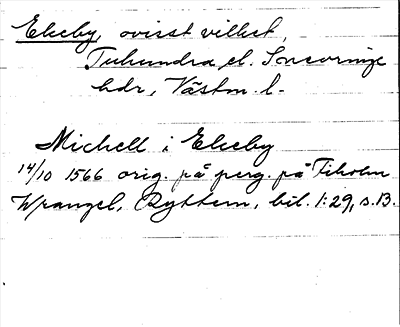 Ekeby, ovisst vilket,
Tuhundra el. Snevringe
hdr, Västm. l.
Michell i Ekeby
14/10 1566 orig. på perg. på Tiholm
Wrangel, Ryttern, bil. 1:29, s.13.